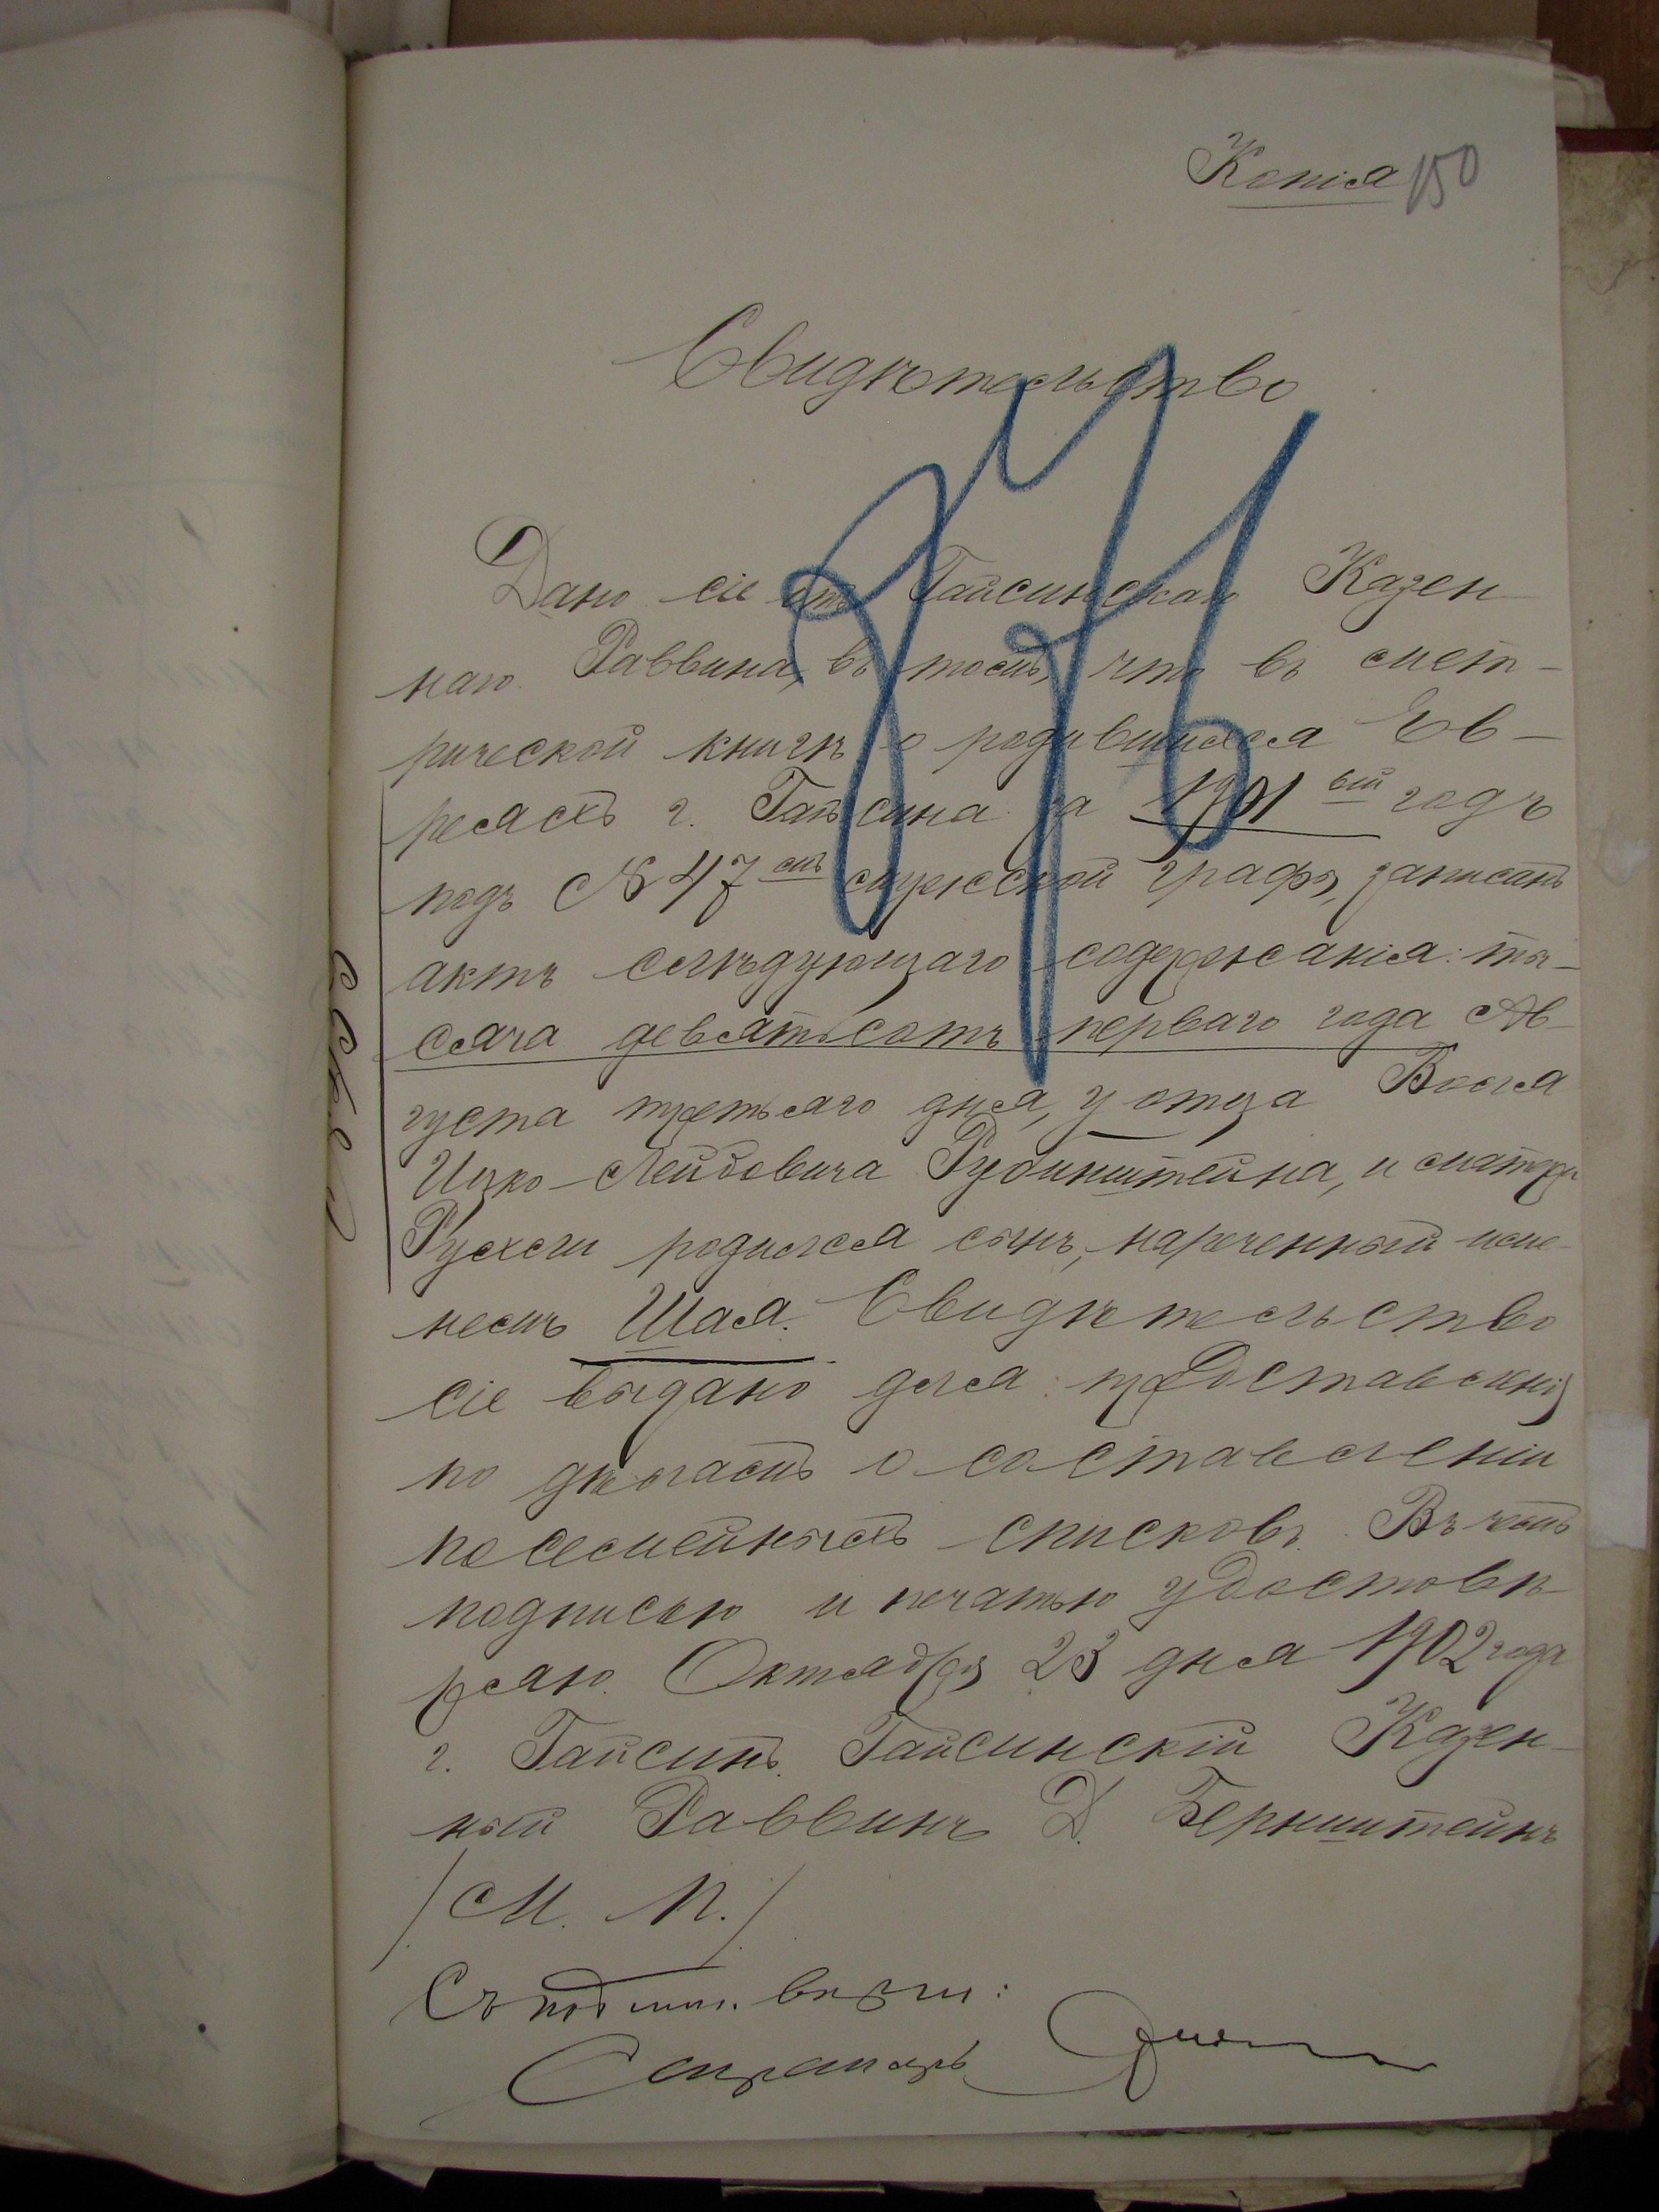 Копія 150
Свидѣтельство
Дано сіе отъ Гайсинскаго Казен
наго Раввина, въ томъ, что въ мет-
рической книгѣ о родившихся Ев-
реяхъ г. Гайсина за 1901 ый годъ
подъ № 47 мъ мужской графы, записанъ
актъ слѣдующаго содержанія: ты-
сяча девятьсотъ перваго года Ав-
густа третьяго дня, у отца Воля
Ицко-Лейбовича Рубинштейна, и матери
Рухли родился сынъ, нареченный име-
немъ Шая. Свидѣтельство
сіе выдано для представленія
по дѣламъ о составленіи
посемейныхъ списковъ. Въ чемъ
подписью и печатью удостовѣ-
ряю. Октября 23 дня 1902 года
г. Гайсинъ. Гайсинскій Казен-
ный Раввинъ Д. Бернштейнъ
/М. П./
Съ подлин. вѣрно:
Секретарь